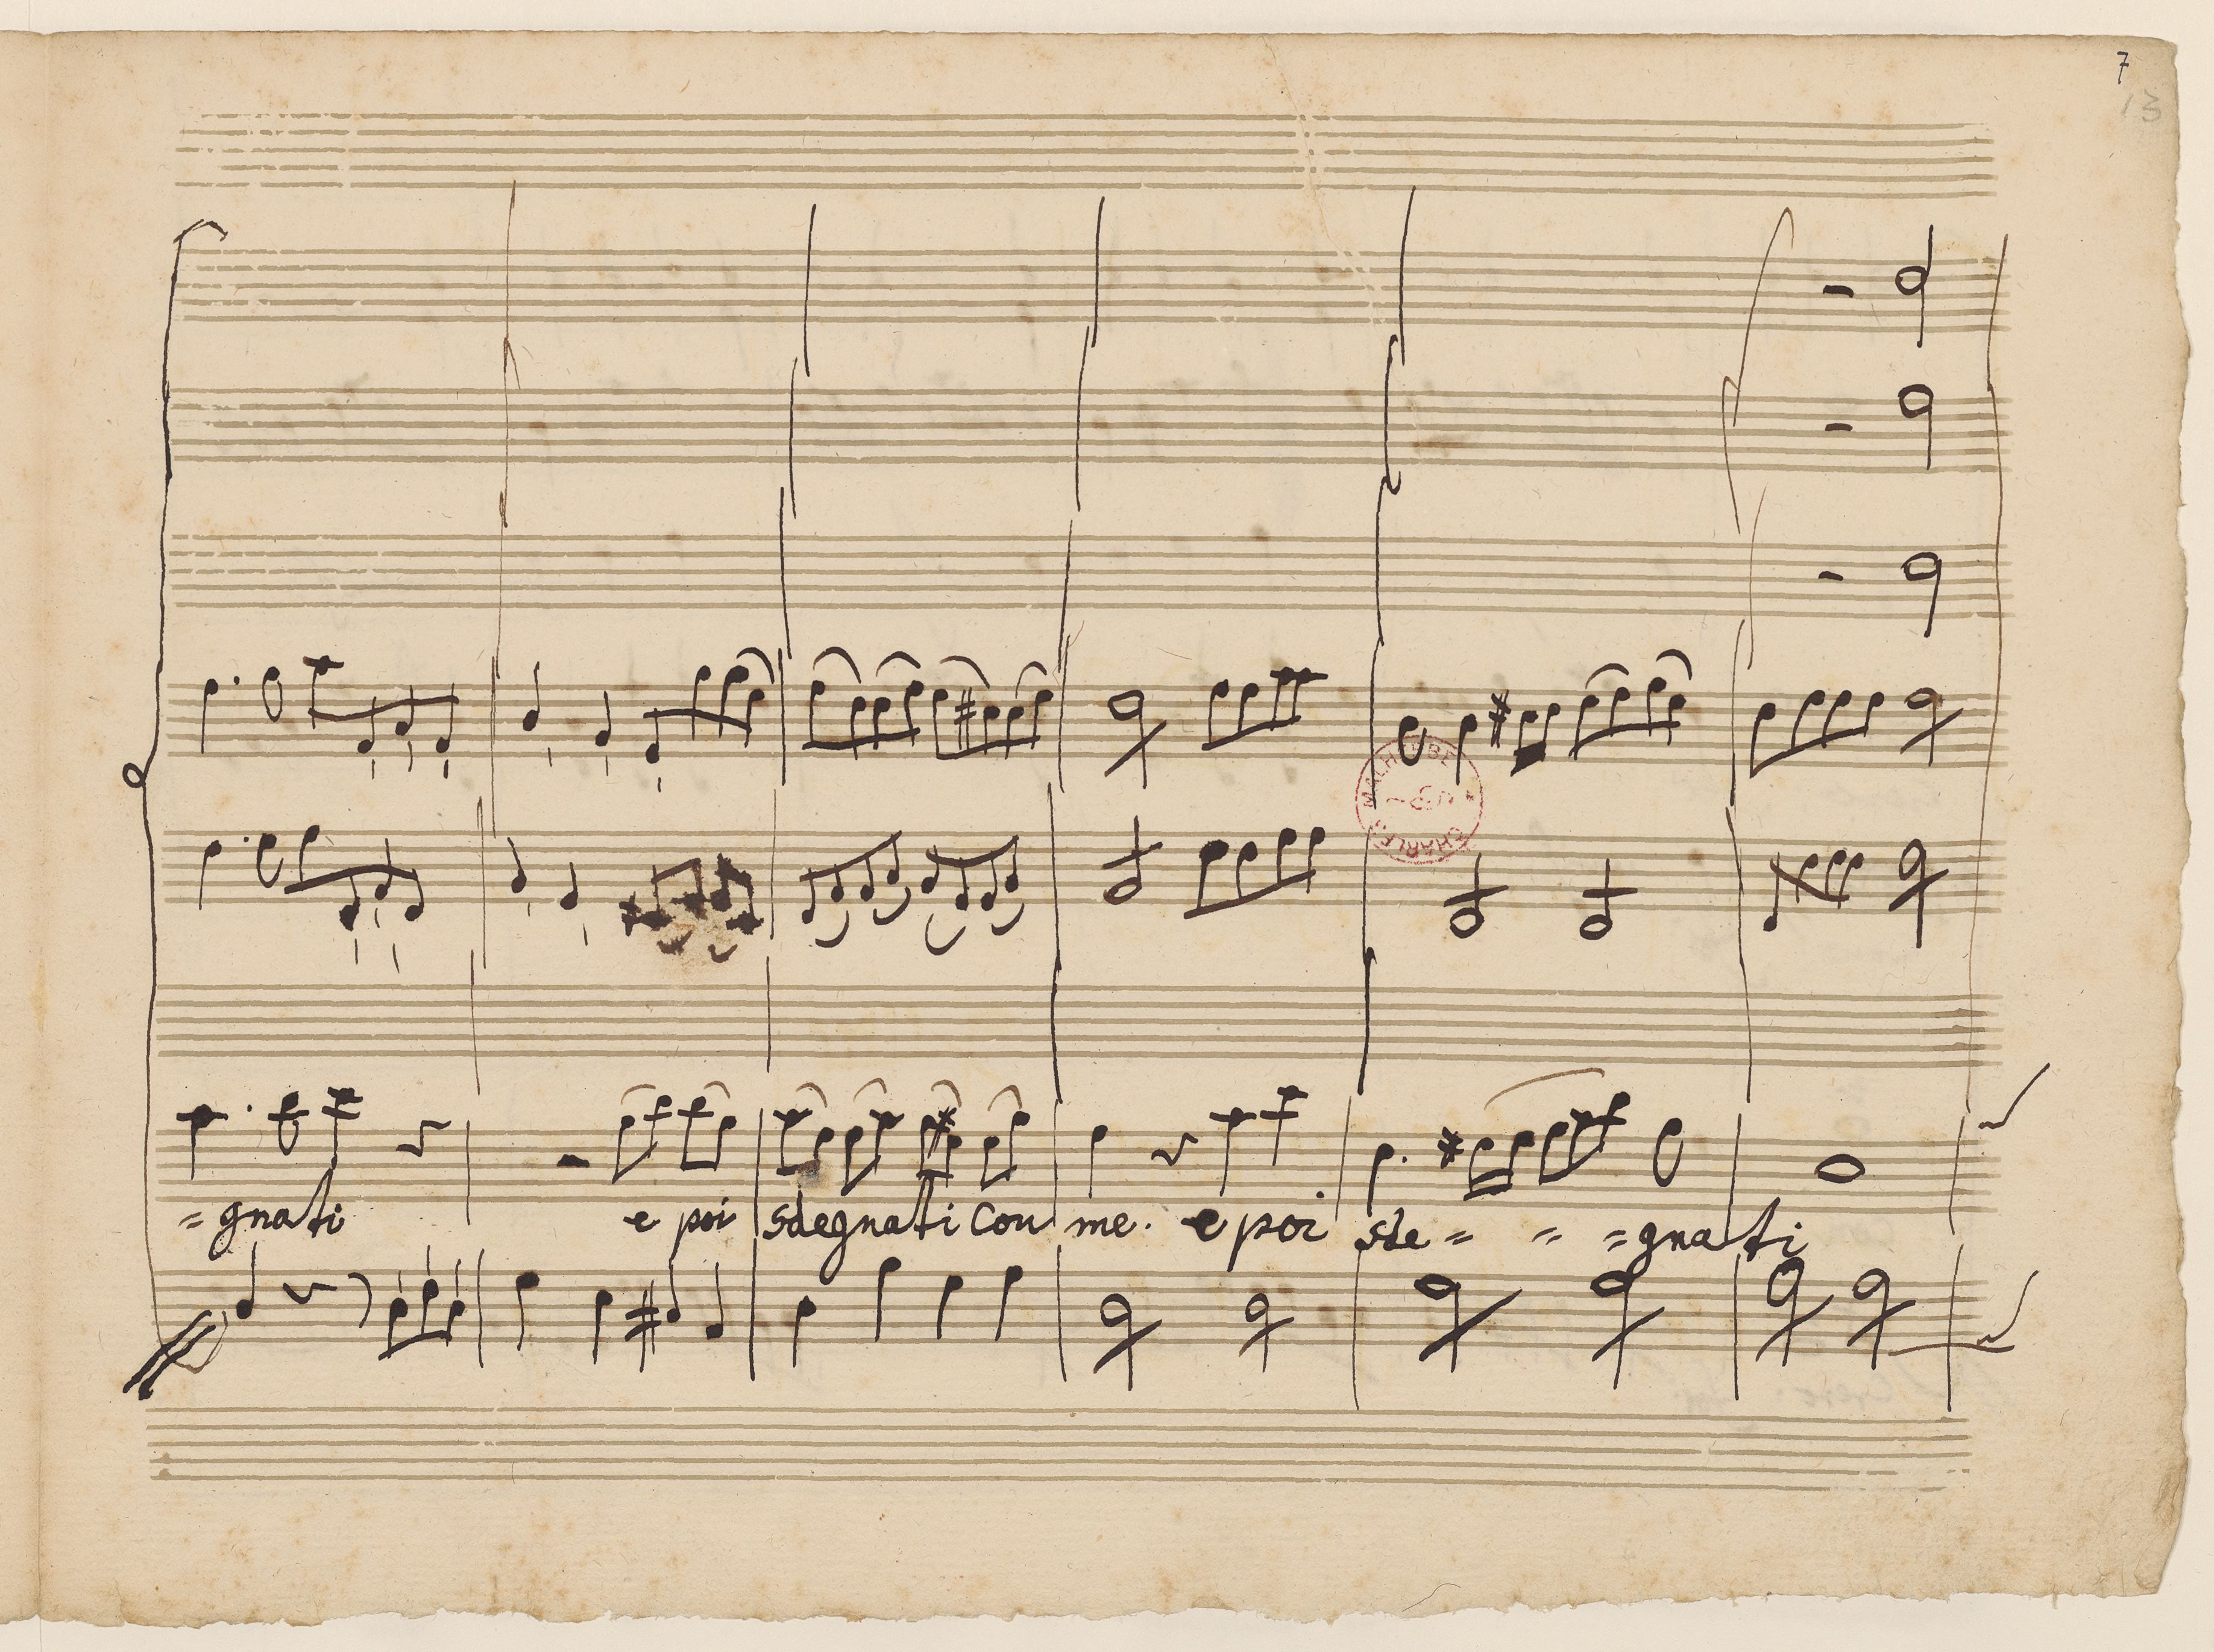 7
13
CHARLES MALHERBE
= gnati e poi sdegnati con me. e poi sde = = = gnati